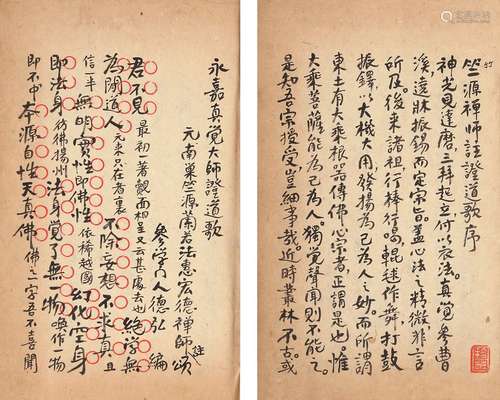 竺源禪師註證道歌序
神光見達磨三拜起立付以衣法真覺參曹
溪遶牀振錫而定宗旨蓋心法之精微非言
所及後來諸祖行棒行喝輥毬作舞打鼓
振鐸以大機大用發揚為己為人之妙而所謂
東土有大乘根器傳佛心宗者正謂是也惟
大乘菩薩能為己為人獨覺聲聞則不能之
是知吾宗授受豈細事哉近時叢林不古或
永嘉真覺大師證道歌
元南巢竺源蘭若法惠宏德禪師頌註
參學門人德弘 編
君不見 最初一著覿面相呈又云甚處去也 絕學無
為閒道人 元來只在者裏 不除妄想不求真 且
信一半 無明實性即佛性 依稀越國 幻化空身
即法身 彷彿揚州 法身覺了無一物 喚作一物
即不中 本源自性天真佛 佛之一字吾不喜聞